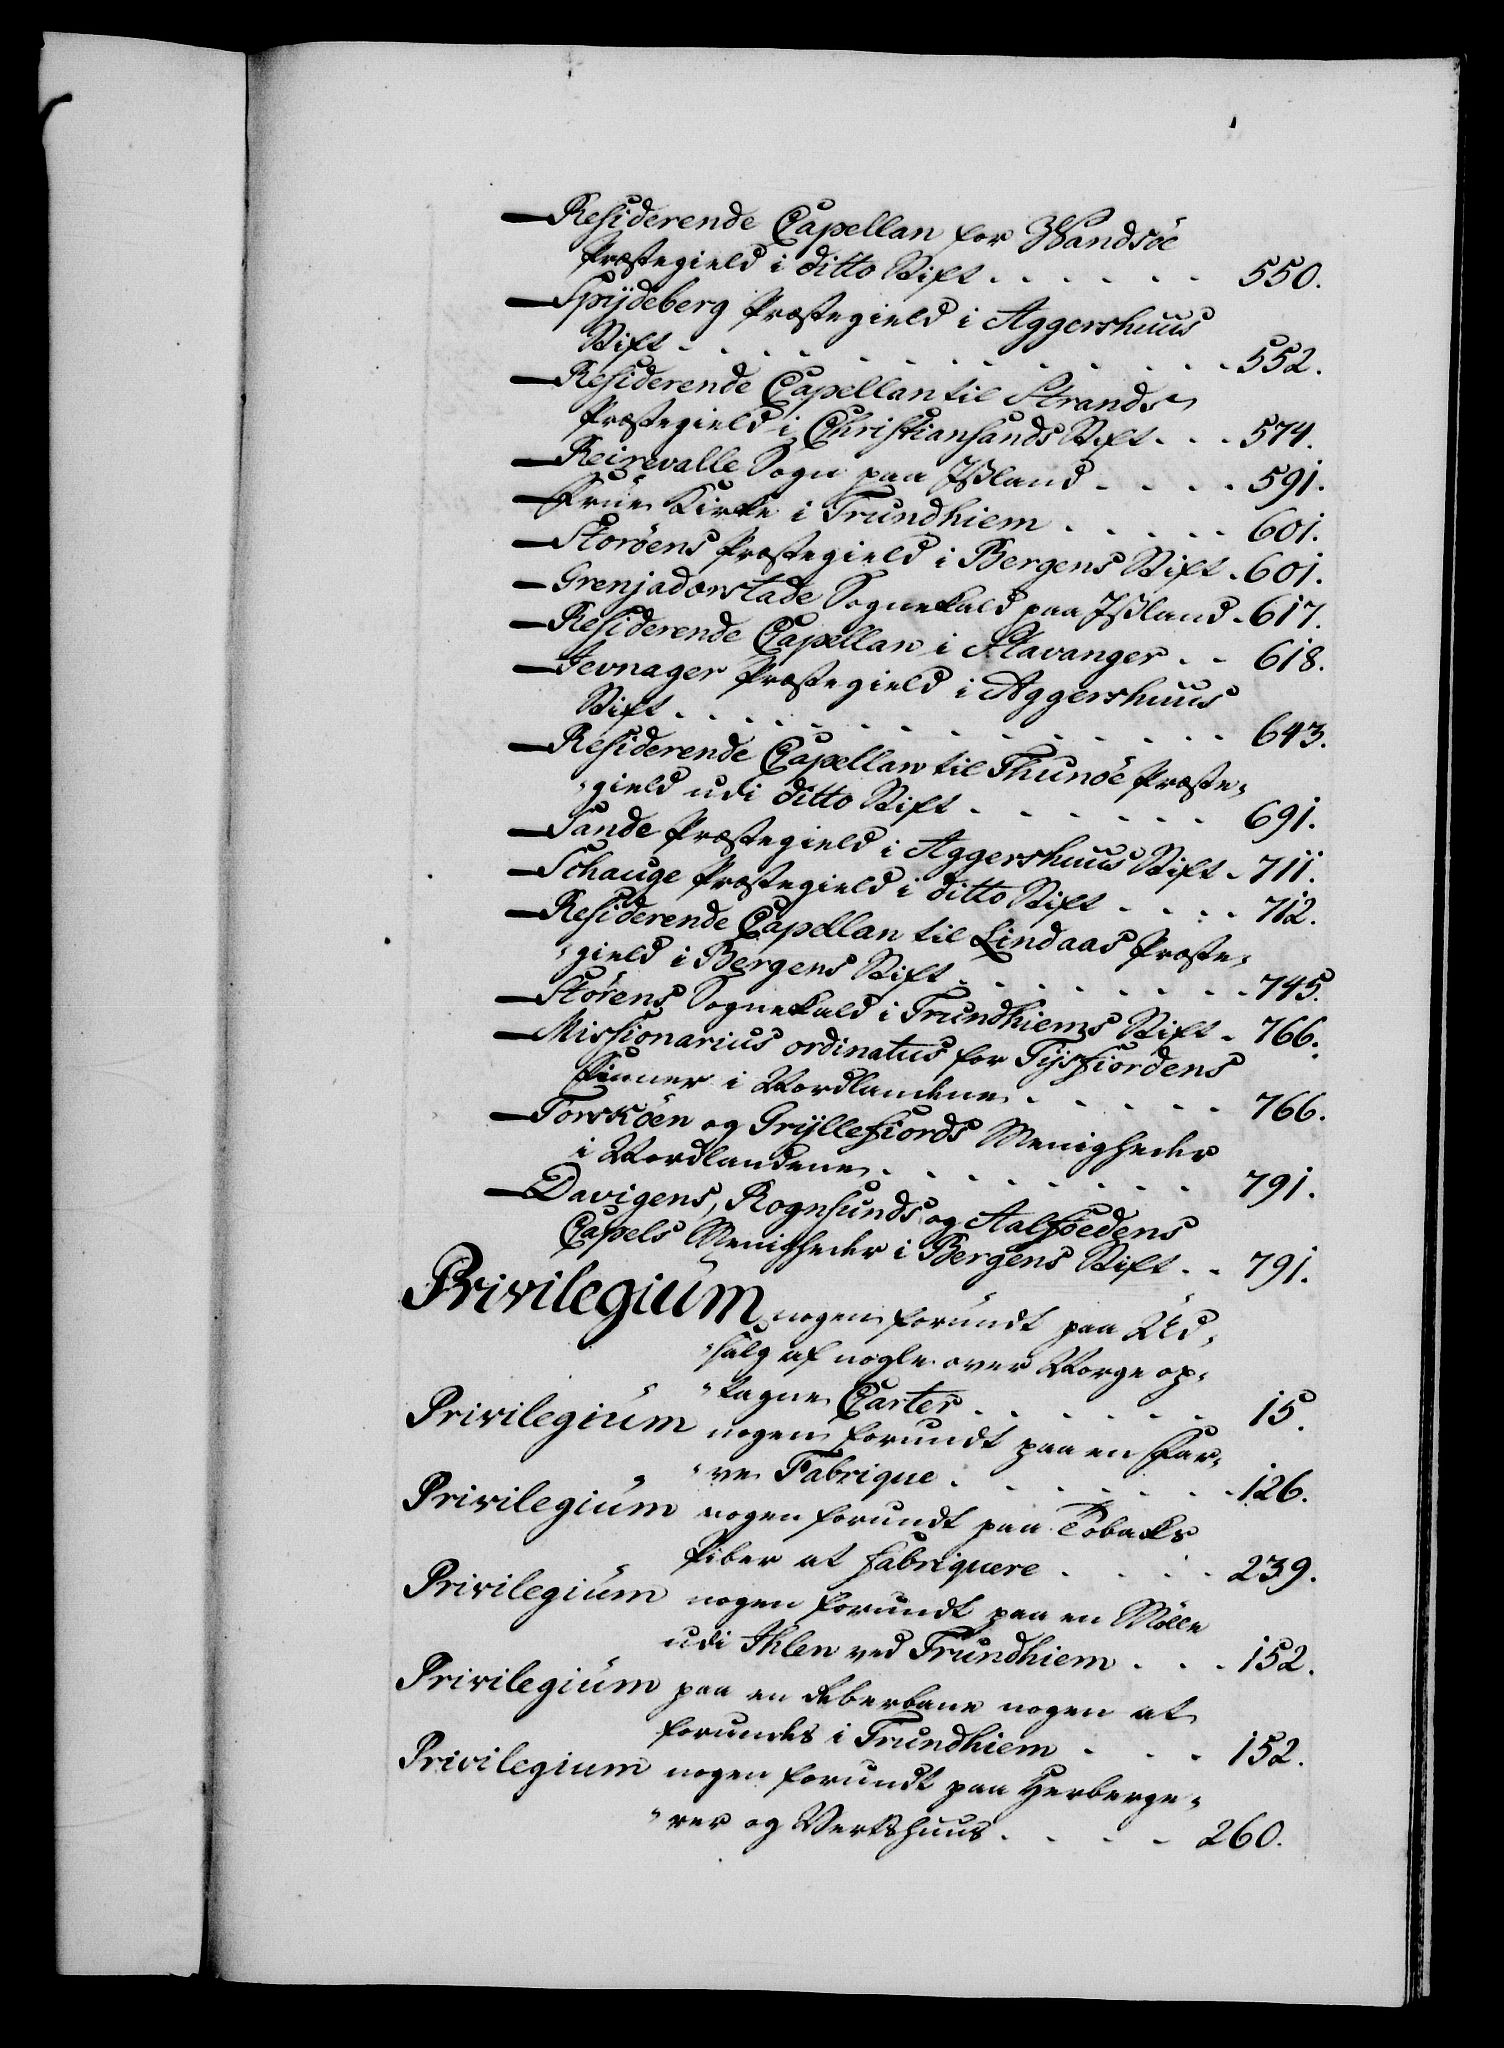 — Residerende Capellan for Wandsöe
Præstegield i ditto Stift . . . . . . 550.
— Spÿdeberg Præstegield i Aggershuus
Stift . . . . . . . . . . . . 552.
— Residerende Capellan til Strands
Præstegield i Christiansands Stift . . . 574.
— Reirevalle Sogn paa Ißland . . . . 591.
— Frue Kirke i Trundhiem . . . . . 601.
— Storöens Præstegield i Bergens Stift . 601.
— Grenjadarstade Sognekald paa Ißland . 617.
— Residerende Capellan i Stavanger . . 618.
— Jevnager Præstegield i Aggershuus
Stift . . . . . . . . . . . . 643.
— Residerende Capellan til Thunöe Præste-
gield udi ditto Stift . . . . . . 691.
— Sande Præstegield i Aggershuus Stift . 711.
— Schauge Præstegield i ditto Stift . . . . 712.
— Residerende Capellan til Lindaas Præste-
gield i Bergens Stift . . . . . . . . 745.
— Störens Sognekald i Trundhiems Stift . 766.
— Missionarius ordinatus for Tysfiordens
Finner i Nordlandene . . . . . 766.
— Torsköen og Grÿllefiords Menigheder
i Nordlandene . . . . . . . 791.
— Davigens, Rognsunds og Aalfoedens
Capels Menigheder i Bergens Stift . . 791.
Privilegium nogen forundt paa Ud-
salg af nogle over Norge op-
tagne Carter . . . . . . 15.
Privilegium nogen forundt paa en Far-
ve Fabrique . . . . . . . 126.
Privilegium nogen forundt paa Tobaks
Piber at fabriquere . . . . 239.
Privilegium nogen forundt paa en Mölle
udi Ihlen ved Trundhiem . . . 152.
Privilegium paa en Reberbane nogen at
forundes i Trundhiem . . . 152.
Privilegium nogen forundt paa Herberge-
rer og Vertshuus . . . . 260.